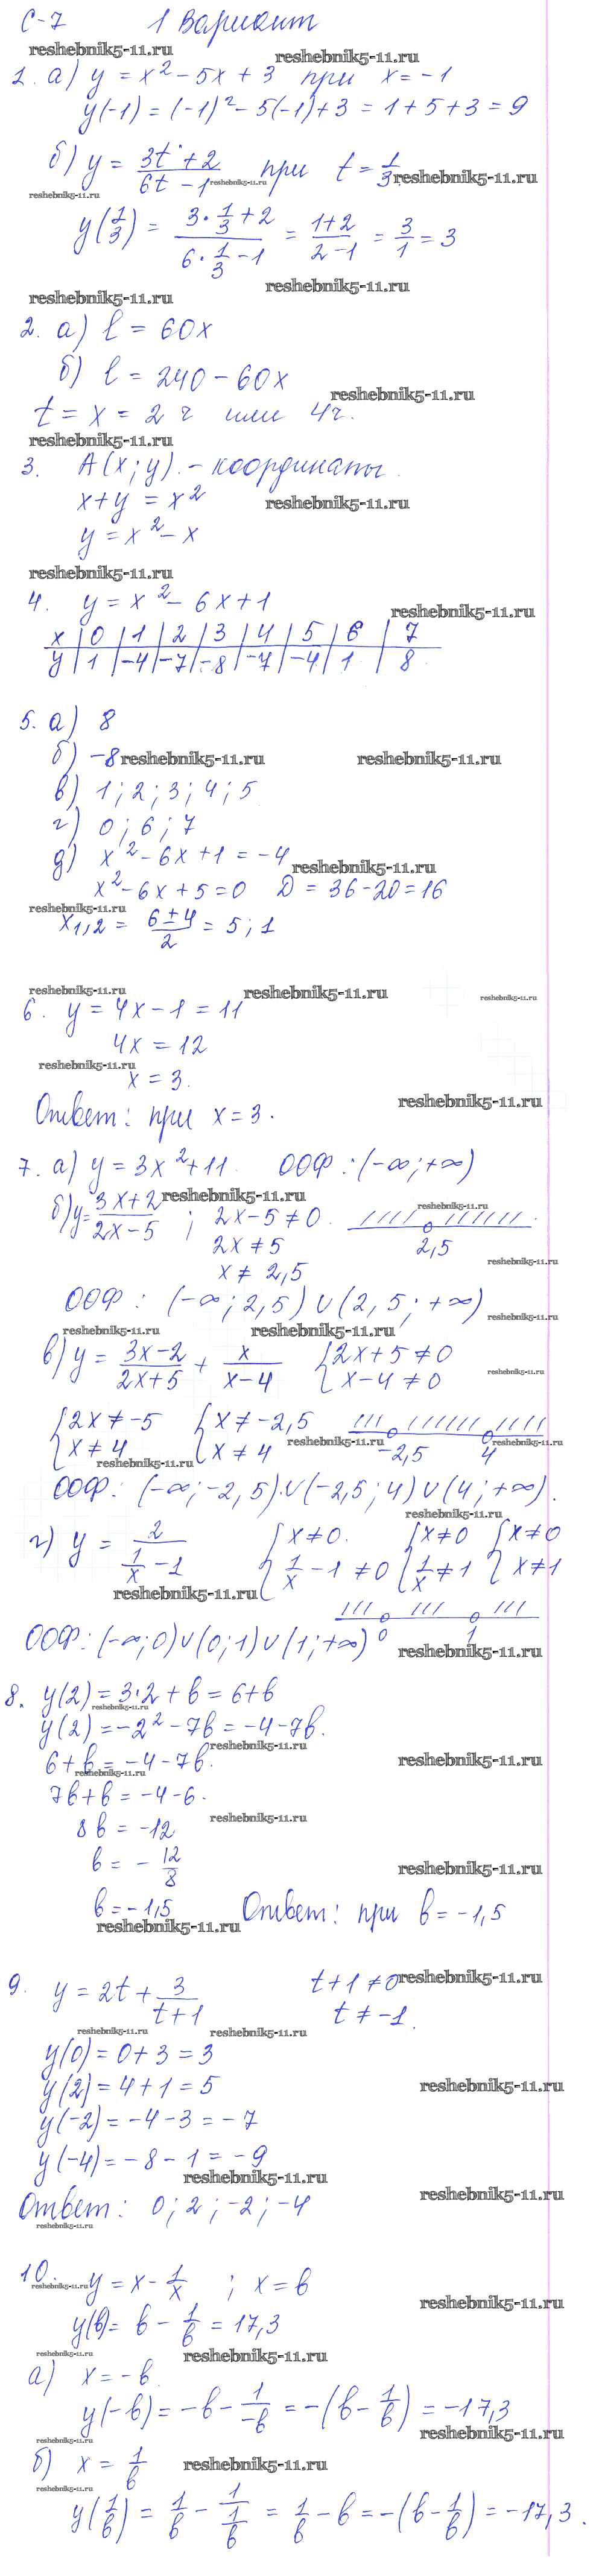 С-7 1 Вариант
reshebnik5-11.ru reshebnik5-11.ru
1. а) y = x² - 5x + 3 при x = -1
y(-1) = (-1)² - 5(-1) + 3 = 1 + 5 + 3 = 9
б) y = (3t + 2)/(6t - 1) при t = 1/3
reshebnik5-11.ru reshebnik5-11.ru reshebnik5-11.ru
y(1/3) = (3·1/3 + 2)/(6·1/3 - 1) = (1+2)/(2-1) = 3/1 = 3
reshebnik5-11.ru reshebnik5-11.ru
2. а) l = 60x
б) l = 240 - 60x
reshebnik5-11.ru
t = x = 2 ч или 4 ч.
reshebnik5-11.ru
3. A(x; y) - координаты.
x + y = x² reshebnik5-11.ru
y = x² - x
reshebnik5-11.ru
4. y = x² - 6x + 1 reshebnik5-11.ru
x | 0 | 1 | 2 | 3 | 4 | 5 | 6 | 7
y | 1 | -4 | -7 | -8 | -7 | -4 | 1 | 8
5. а) 8
б) -8 reshebnik5-11.ru reshebnik5-11.ru
в) 1; 2; 3; 4; 5
г) 0; 6; 7
д) x² - 6x + 1 = -4 reshebnik5-11.ru
x² - 6x + 5 = 0 D = 36 - 20 = 16
reshebnik5-11.ru
x1,2 = (6 ± 4)/2 = 5; 1
reshebnik5-11.ru reshebnik5-11.ru reshebnik5-11.ru
6. y = 4x - 1 = 11
4x = 12
reshebnik5-11.ru
x = 3.
Ответ: при x = 3. reshebnik5-11.ru
7. а) y = 3x² + 11. ООФ: (-∞; +∞)
reshebnik5-11.ru reshebnik5-11.ru
б) y = (3x + 2)/(2x - 5) ; 2x - 5 ≠ 0.
2x ≠ 5 2,5
reshebnik5-11.ru
x ≠ 2,5
ООФ: (-∞; 2,5) ∪ (2,5; +∞)
reshebnik5-11.ru
reshebnik5-11.ru reshebnik5-11.ru
в) y = (3x - 2)/(2x + 5) + x/(x - 4) { 2x + 5 ≠ 0
x - 4 ≠ 0 reshebnik5-11.ru
{ 2x ≠ -5 { x ≠ -2,5
x ≠ 4 x ≠ 4 -2,5 4
reshebnik5-11.ru reshebnik5-11.ru reshebnik5-11.ru
ООФ: (-∞; -2,5) ∪ (-2,5; 4) ∪ (4; +∞).
reshebnik5-11.ru
г) y = 2/(1/x - 1) { x ≠ 0. { x ≠ 0 { x ≠ 0
1/x - 1 ≠ 0 1/x ≠ 1 x ≠ 1
reshebnik5-11.ru
ООФ: (-∞; 0) ∪ (0; 1) ∪ (1; +∞) 0 1
reshebnik5-11.ru
8. y(2) = 3·2 + b = 6 + b
reshebnik5-11.ru
y(2) = -2² - 7b = -4 - 7b.
reshebnik5-11.ru
6 + b = -4 - 7b. reshebnik5-11.ru
reshebnik5-11.ru
7b + b = -4 - 6.
reshebnik5-11.ru
8b = -12
b = -12/8 reshebnik5-11.ru
b = -1,5 Ответ: при b = -1,5
reshebnik5-11.ru
9. y = 2t + 3/(t + 1) t + 1 ≠ 0 reshebnik5-11.ru
t ≠ -1.
reshebnik5-11.ru reshebnik5-11.ru
y(0) = 0 + 3 = 3
y(2) = 4 + 1 = 5 reshebnik5-11.ru
y(-2) = -4 - 3 = -7
y(-4) = -8 - 1 = -9
reshebnik5-11.ru
Ответ: 0; 2; -2; -4 reshebnik5-11.ru
reshebnik5-11.ru
10. y = x - 1/x ; x = b
reshebnik5-11.ru reshebnik5-11.ru
y(b) = b - 1/b = 17,3
reshebnik5-11.ru reshebnik5-11.ru
а) x = -b
y(-b) = -b - 1/-b = -(b - 1/b) = -17,3
reshebnik5-11.ru reshebnik5-11.ru
б) x = 1/b reshebnik5-11.ru
reshebnik5-11.ru
y(1/b) = 1/b - 1/(1/b) = 1/b - b = -(b - 1/b) = -17,3.